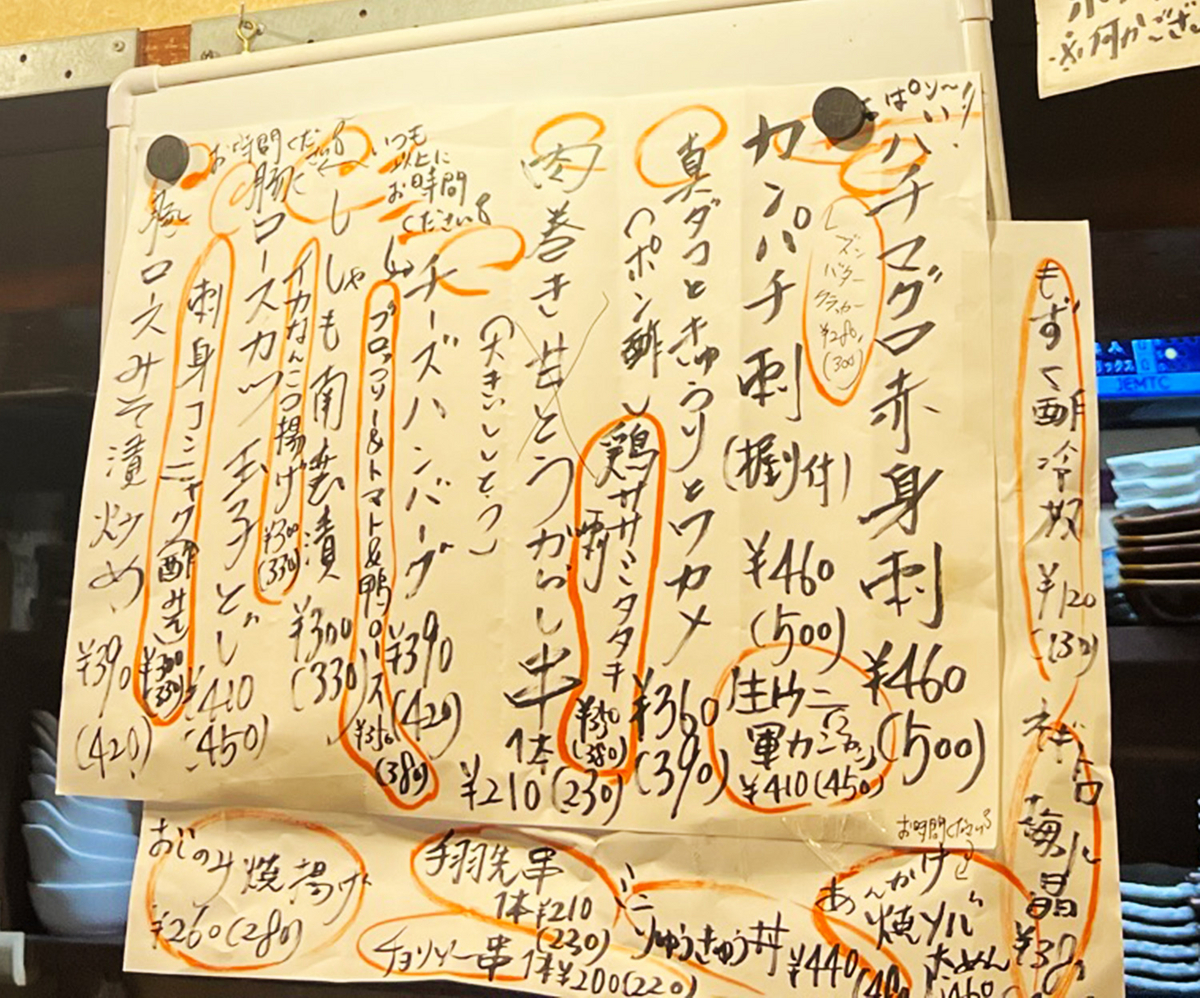 ぱりぃ〜!!
ハチマグロ赤身刺 ¥460 (500)
レーズン
バター
クラッカー
¥280,
(300)
カンパチ刺 (握り付) ¥460 (500)
生ウニ
軍カン
¥410(450)
真ダコときゅうりとワカメ ¥360 (390)
(ポン酢)
鶏ササミタタキ ¥350 (380)
肉巻き甘とうがらし串 1本 ¥210 (230)
(大きいししとう)
いつも
以上に
お時間
ください
チーズハンバーグ ¥390 (420)
ブロッコリー&トマト&鴨ロース ¥350 (380)
ししゃも南蛮漬 ¥300 (330)
イカなんこつ揚げ ¥300 (330)
お時間ください
豚ロースカツ玉子とじ ¥410 (450)
刺身コンニャク(酢みそ) ¥300 (330)
豚ロースみそ漬炒め ¥390 (420)
もずく酢冷奴 ¥120 (130)
梅水晶 ¥350
お時間ください
あんかけ
焼ソバ
¥460
りゅうきゅう丼 ¥440
手羽先串
1本 ¥210
(230)
チョリソー串 1本 ¥200(220)
おじのみ焼揚げ
¥260(280)
JEMTC